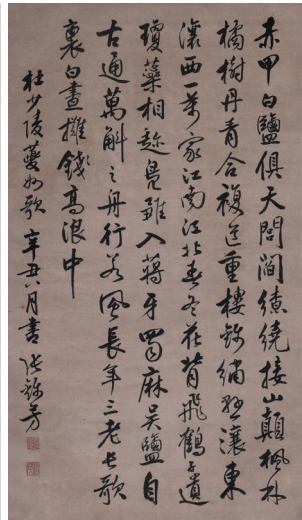 赤甲白鹽俱天閭閻繚繞接山顛楓林
橘樹丹青合複道重樓錦繡懸瀼東
瀼西一萬家江南江北春冬花背飛鶴子遺
瓊蘂相趁鳧雛入蔣牙蜀麻吳鹽自
古通萬斛之舟行若風長年三老長歌
裏白晝攤錢高浪中
杜少陵夔州歌 辛丑八月書 張芳